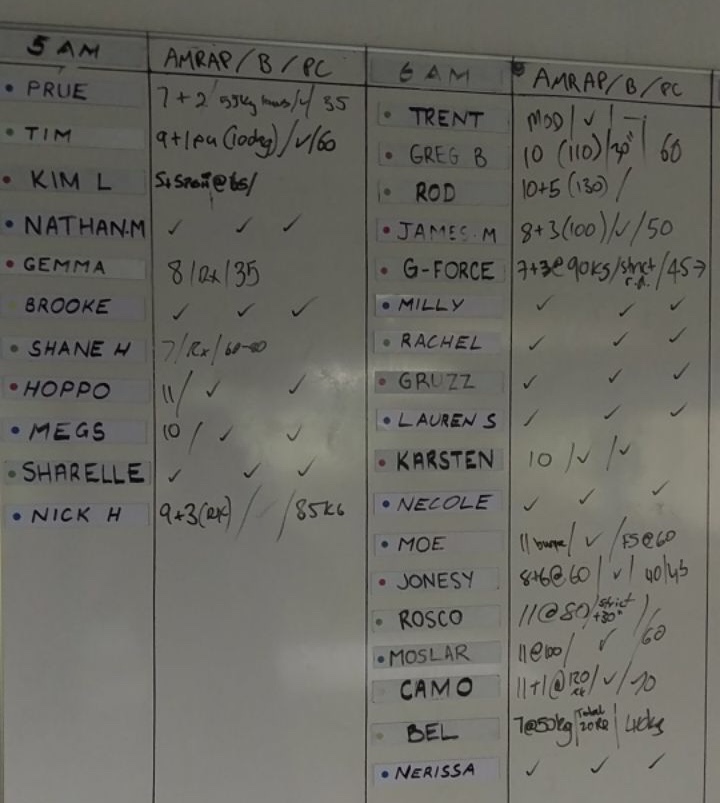 5 AM AMRAP / B / PC
PRUE 7+2 / 35
TIM 9+1 (100kg) / ✓ / 60
KIM L
NATHAN.M ✓ ✓ ✓
GEMMA 8 / Rx / 35
BROOKE ✓ ✓ ✓
SHANE H 7 / Rx /
HOPPO 11 / ✓ ✓
MEGS 10 / ✓ ✓
SHARELLE ✓ ✓ ✓
NICK H 9+3 (RX) / / 85KG
6 AM AMRAP / B / PC
TRENT MOD / ✓ / —
GREG B 10 (110) / 30" / 60
ROD 10+5 (130) /
JAMES.M 8+3 (100) / ✓ / 50
G-FORCE 7+3@90KG / strict / 45
MILLY ✓ ✓ ✓
RACHEL ✓ ✓ ✓
GRUZZ ✓ ✓ ✓
LAUREN S ✓ ✓ ✓
KARSTEN 10 / ✓ / ✓
NECOLE ✓ ✓ ✓
MOE 11 / ✓ / @60
JONESY 8+6@60 / ✓ / 40/45
ROSCO 11@80 / strict +30" /
MOSLAR 11@100 / ✓ 60
CAMO 11+1@120 / ✓ / 70
BEL 7@50kg / Total / 40kg
NERISSA ✓ ✓ ✓